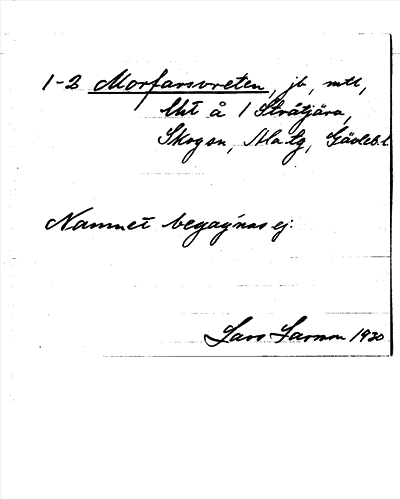 1-2 Morfarsvreten, jb, mtl,
Utå 1 Stråtjära,
Skogsn, Ala tg, Gävleb. l.
Namnet begagnas ej.
Lars Larsson 1930